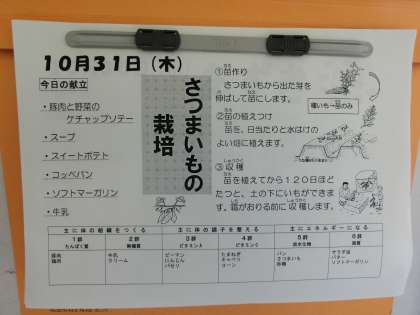 10月31日(木)
今日の献立
・豚肉と野菜の
ケチャップソテー
・スープ
・スイートポテト
・コッペパン
・ソフトマーガリン
・牛乳
さつまいもの
栽培
①苗作り
さつまいもから出た芽を
伸ばして苗にします。
種いも→苗のみ
②苗の植えつけ
苗を、日当たりと水はけの
よい畑に植えます。
③収穫
苗を植えてから120日ほど
たつと、土の下にいもができま
す。霜がおりる前に収穫します。
主に体の組織をつくる 主に体の調子を整える 主にエネルギーになる
1群 2群 3群 4群 5群 6群
たんぱく質 無機質 ビタミンA ビタミンC 炭水化物 脂質
豚肉 牛乳 ピーマン たまねぎ パン サラダ油
鶏肉 クリーム にんじん キャベツ さつまいも バター
パセリ コーン 砂糖 ソフトマーガリン